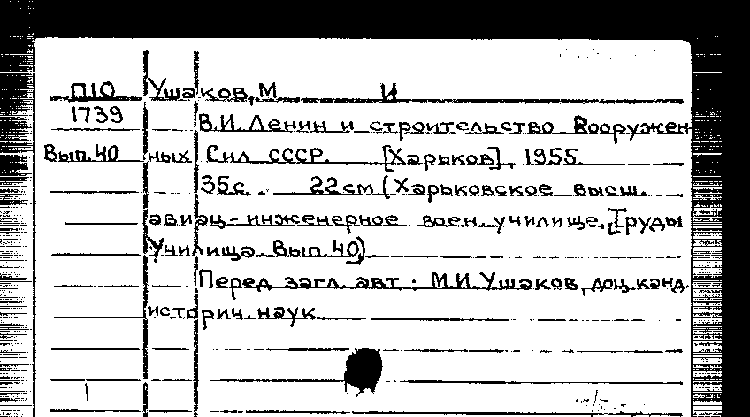 П10 Ушаков, М И
1739 В.И. Ленин и строительство Вооружен-
Вып. 40 ных Сил СССР. [Харьков], 1955.
35с. 22см (Харьковское высш.
авиац.-инженерное воен. училище. [Труды
Училища. Вып. 40)
Перед загл. авт.: М.И. Ушаков, доц. канд.
историч. наук